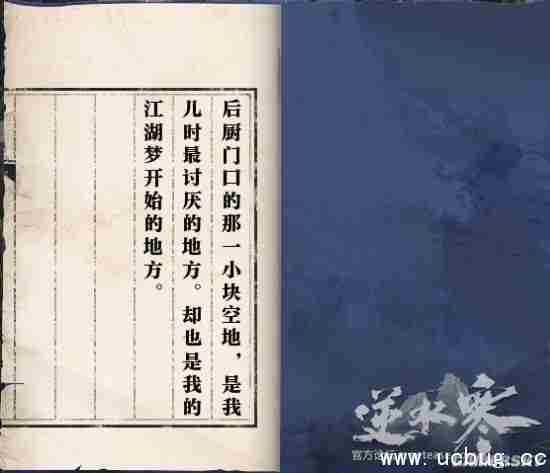 后厨门口的那一小块空地，是我
儿时最讨厌的地方。却也是我的
江湖梦开始的地方。
逆水寒
官方论坛
www.ucbug.cc